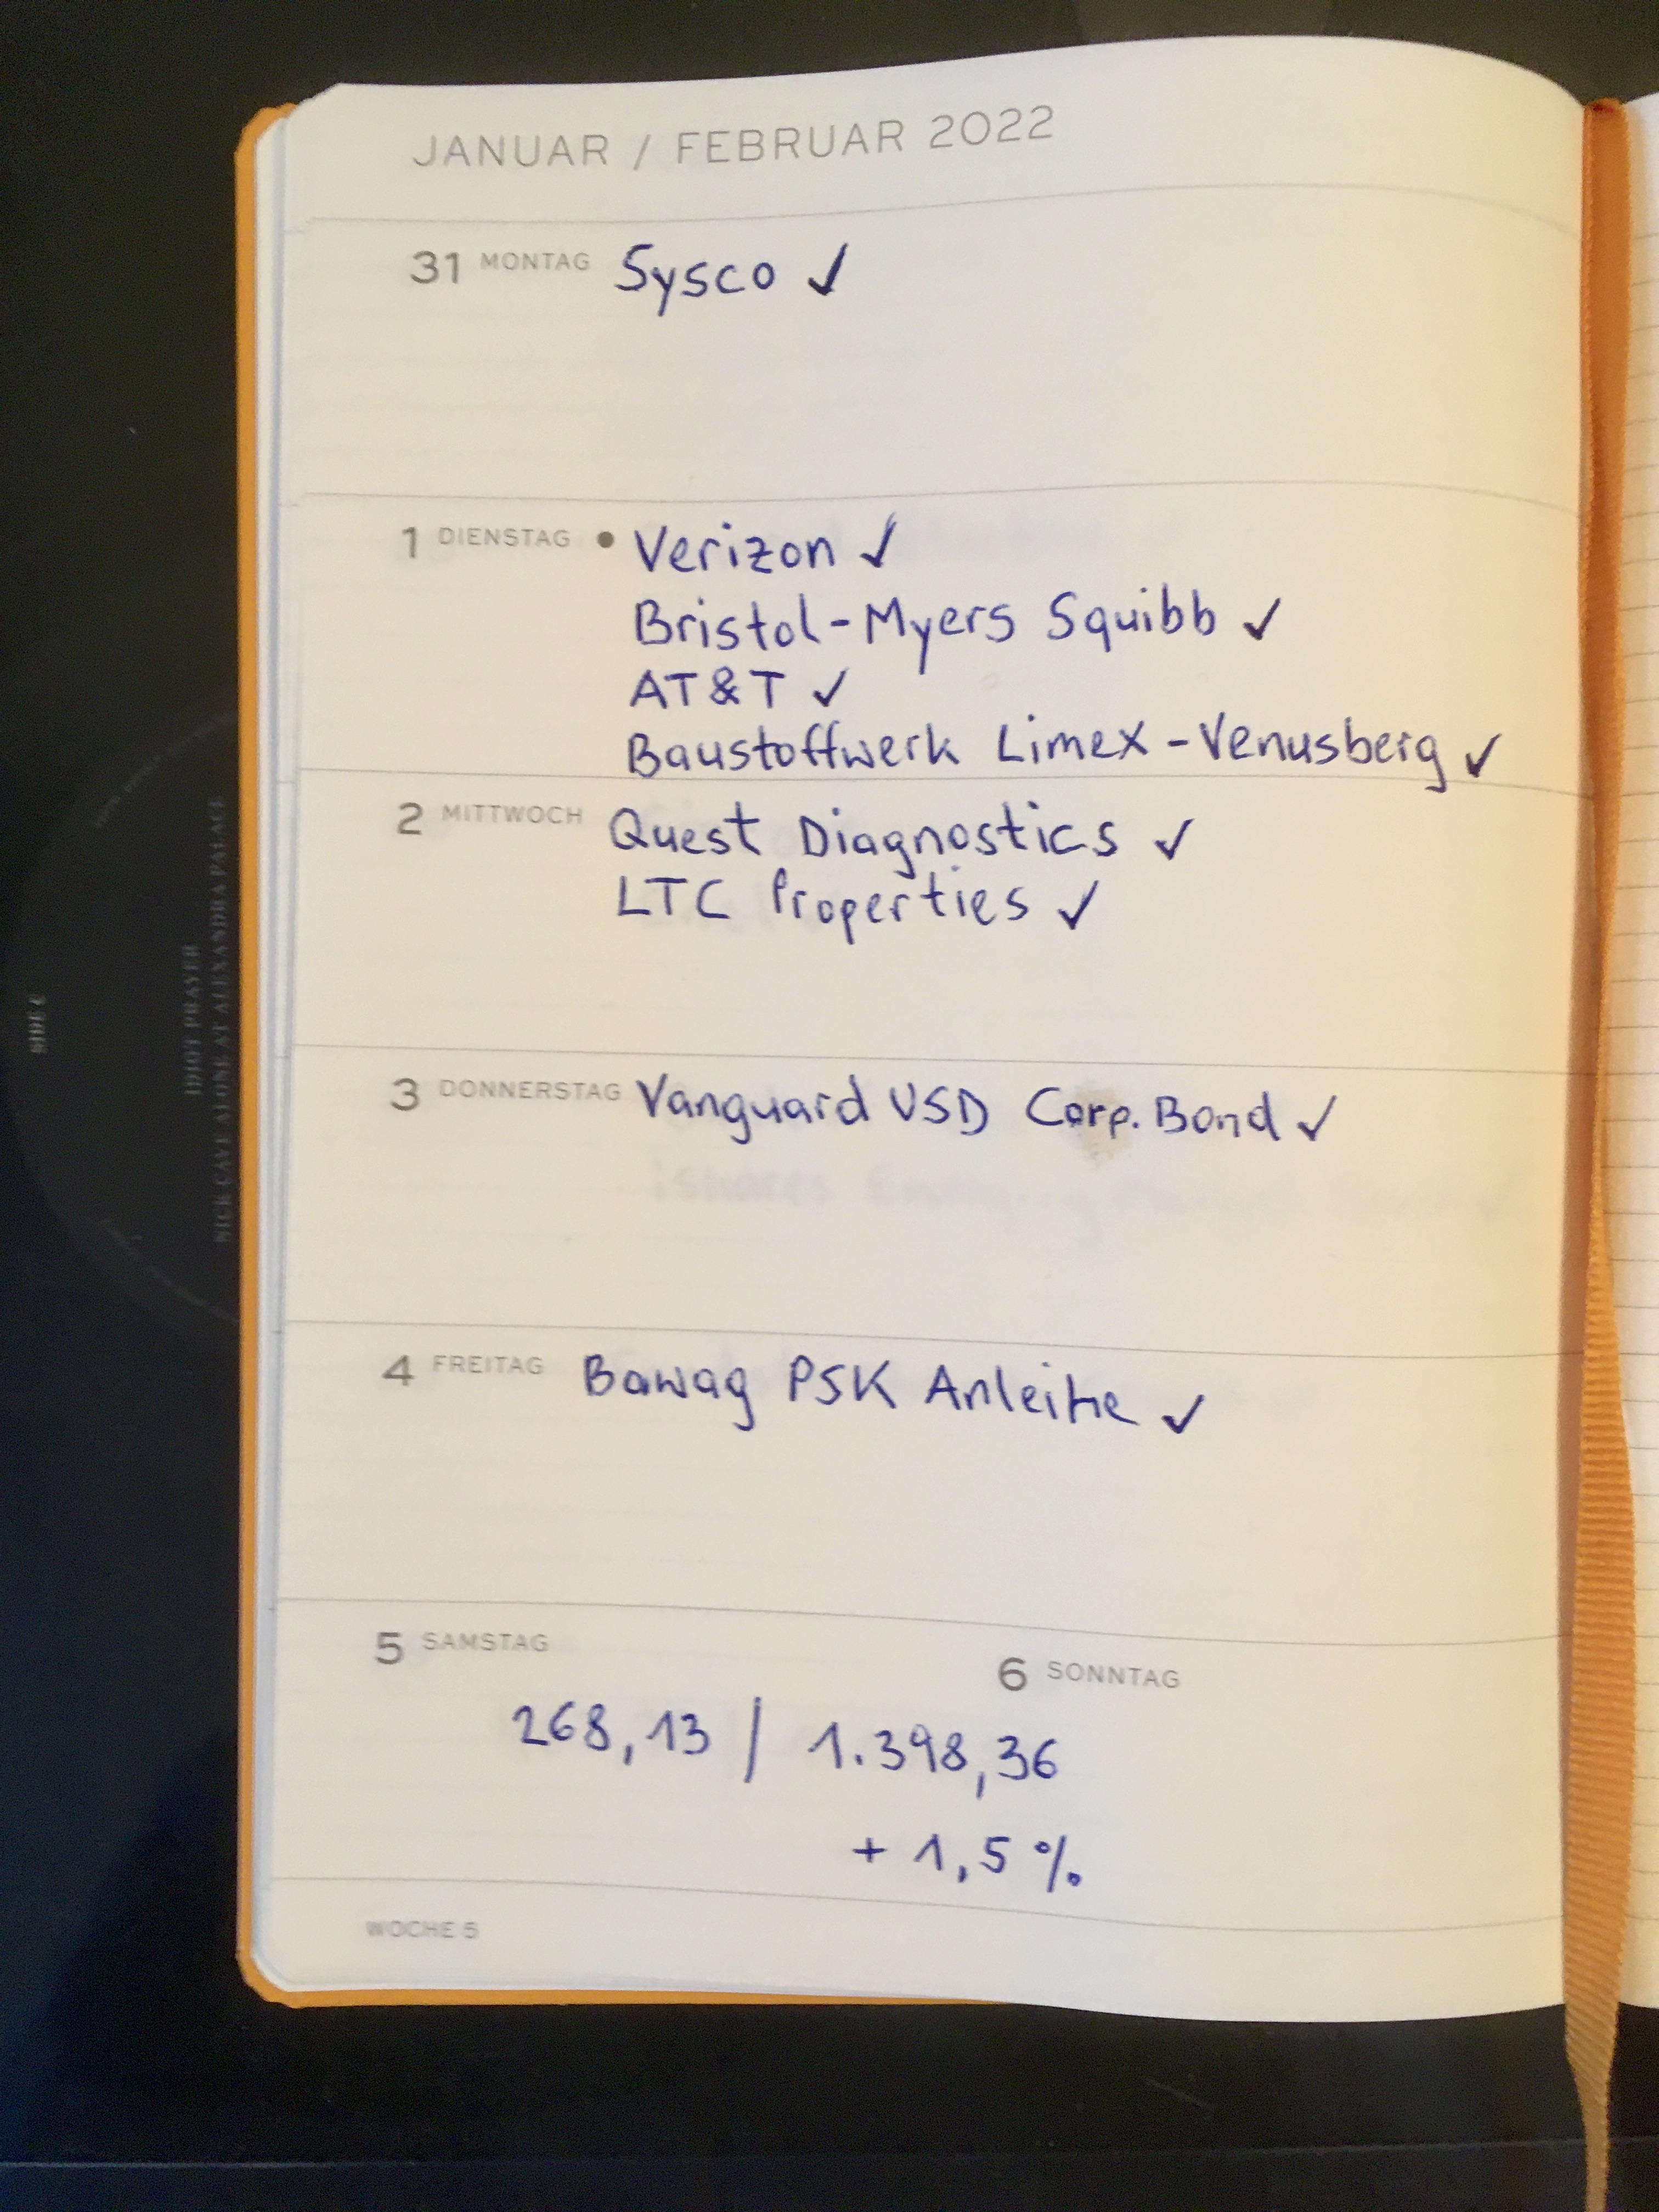 JANUAR / FEBRUAR 2022
31 MONTAG Sysco ✓
1 DIENSTAG • Verizon ✓
Bristol-Myers Squibb ✓
AT&T ✓
Baustoffwerk Limex-Venusberg ✓
2 MITTWOCH Quest Diagnostics ✓
LTC Properties ✓
3 DONNERSTAG Vanguard USD Corp. Bond ✓
4 FREITAG Bawag PSK Anleihe ✓
5 SAMSTAG
6 SONNTAG
268,13 / 1.398,36
+ 1,5 %
WOCHE 5
SIDE C
IDIOT PRAYER
NICK CAVE ALONE AT ALEXANDRA PALACE